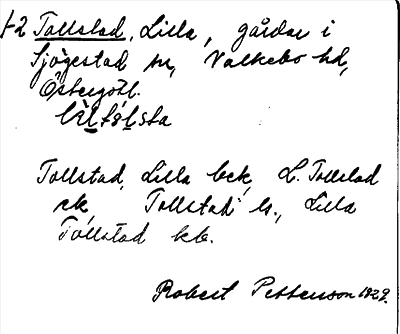 1-2 Tollstad, Lilla, gårdar i
Sjögestad sn, Valkebo hd,
Östergötl.
Tollstad, Lilla bek, L. Tollstad
rk, Tollstad s., Lilla
Tollstad kb.
Robert Pettersson 1929.